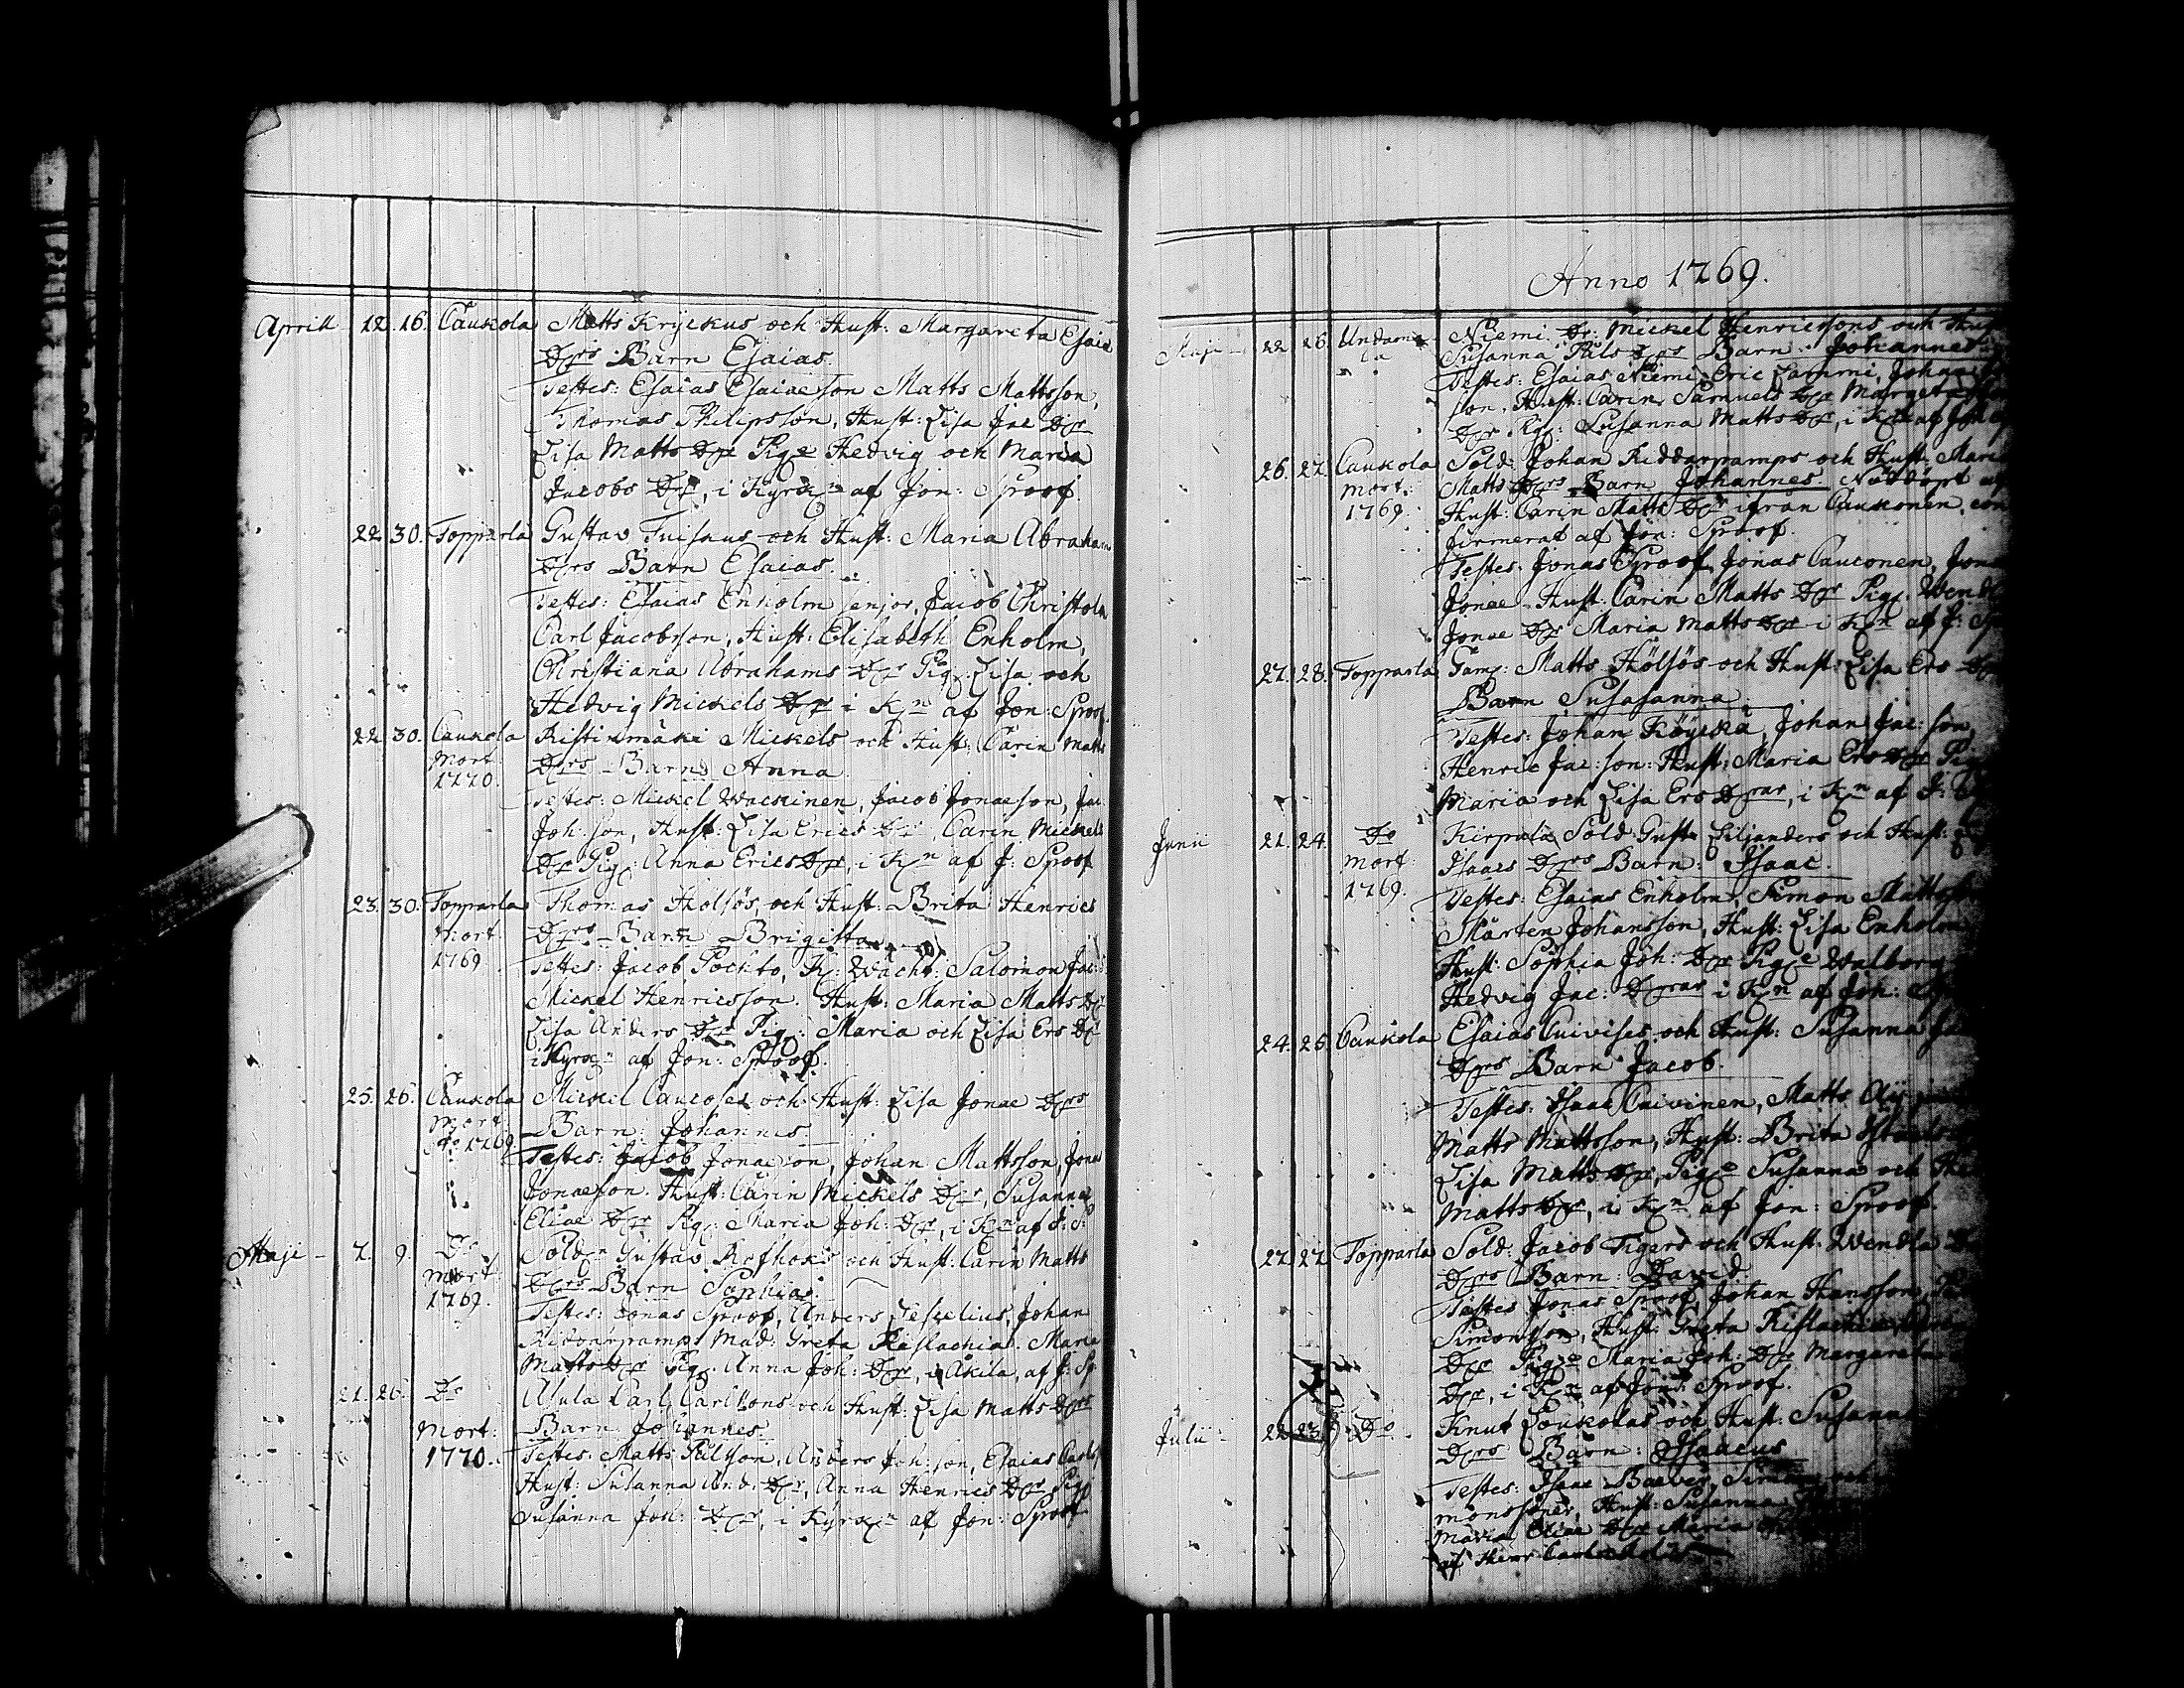 Aprill 12. 16. Caukola Matts Kryckus och Hust: Margareta Esaiæ
Dꝛs Barn Esaias.
Testes: Esaias Esaiæson Matts Mattsson,
Thomas Philipsson, Hust: Lisa Jac Dr
Lisa Matts Dr Pige Hedvig och Maria
Jacobs Dr, i Kyrkn af Jon: Sproof.
22. 30. Topparla Gustav Tuisus och Hust: Maria Abrahams
Drs Barn Esaias.
Testes: Esaias Enholm senjor, Jacob Christoln
Carl Jacobsson, Hust: Elisabeth Enholm,
Christiana Abrahams Dr Pig: Lisa och
Hedvig Mickels Dr i Kn af Jon: Sproof.
22. 30. Caukola Ristinmäki Mickels och Hust: Carin Matts
Mort. 1770. Drs Barn Anna
Testes: Mickel Wackinen, Jacob Jonaeson, Jac
Joh: son, Hust: Lisa Erics Dr, Carin Mickels
Dr Pig: Anna Erics Dr, i Kn af J: Sproof
23. 30. Topparla Thomas Hölsös och Hust: Brita Henrics
Mort. 1769 Drs Barn Brigitta
Testes: Jacob Pochto, K: Wächt: Salomon Jac: s
Mickel Henricsson. Hust: Maria Matts Dr
Lisa Anders Dr Pig: Maria och Lisa Ers Dr
i Kyrkn af Jon: Sproof.
25. 26. Caukola Mickel Caucoses och Hust: Lisa Jonae Drs
Mort: Ao 1769. Barn: Johannes.
Testes: Jacob Jonaeson, Johan Mattsson, Jonas
Jonaeson. Hust: Carin Mickels Dr, Susanna
Eliae Dr Pig: Maria Joh: Dr, i Kn af J: S:
Maji 7. 9. Do Soldn Gustav Refhoks och Hust: Carin Matts
Mort: 1769. Drs Barn Sophia.
Testes: Jonas Sproof, Anders Leselius, Johan
Riddarpamps Mad: Greta Rislachia. Maria
Matts Dr Pig: Anna Joh: Dr, i Akila, af J: Sp.
21. 26. Do Asula Carl Carlssons och Hust: Lisa Matts Drs
Mort: 1770. Barn Johannes
Testes: Matts Pålsson, Anders Joh: son, Esaias Carls
Hust: Susanna And: Dr, Anna Henrics Dr Pig:
Susanna Joh: Dr, i Kyrkn af Jon: Sproof
Anno 1769.
Maji 22. 26. Undamala Niemi Dr: Mickel Henricssons och Hust
Susanna Påls Drs Barn: Johannes
Testes: Esaias Niemi, Eric Lammi, Johan
son, Hust: Carin Samuels Dr Margeta
Dr Pig: Susanna Matts Dr, i Kn af
26. 27. Caukola Sold: Johan Riddarpamps och Hust: Mari
Mort. 1769. Matts Drs Barn Johannes. Nöddöpt af
Hust: Carin Matts Dr ifrån Caukonen, con
firmerat af Jon: Sproof.
Testes: Jonas Sproof, Jonas Cauconen, Jon
Jonae Hust: Carin Matts Dr Pig: Wendl
Jonae Dr Maria Matts Dr i Kn af J: Sp
27. 28. Topparla Gam: Matts Hölsös och Hust: Lisa Ers Dr
Barn Susasanna
Testes: Johan Köyckä, Johan Jac: son,
Henric Jac: son: Hust: Maria Ers Dr Pig
Maria och Lisa Ers Drar, i Kn af J:
Junii 21. 24. Do Kirpula Sold: Gust: Liljanders och Hust:
Mort: 1769. Isaacs Drs Barn: Isaac.
Testes: Esaias Enholm, Simon Matts
Mårten Johansson, Hust: Lisa Enholm
Hust: Sophia Joh: Dr Pige Walborg
Hedvig Jac: Drar i Kn af Joh:
24. 25. Caukola Esaias Cuivises och Hust: Susanna Ja
Drs Barn Jacob.
Testes: Isaac Cuivinen, Matts
Matts Mattsson, Hust: Brita
Lisa Matts Dr, Pige Susanna och
Matts Dr, i Kn af Jon: Sproof.
27. 27. Topparla Sold: Jacob Tigers och Hust: Wendla
Drs Barn: David
Testes Jonas Sproof, Johan Hansson,
Simonsson, Hust: Greta Rislachia,
Dr Pige Maria Joh: Dr Margareta
Dr, i Kn af Jon: Sproof.
Julii 22. 23. Do Knut Loukolas och Hust: Susanna
Drs Barn: Isaacus
Testes: Isaac Baever, Simon och
monssoner, Hust: Susanna
Maria Eliae Dr Maria
af Henr